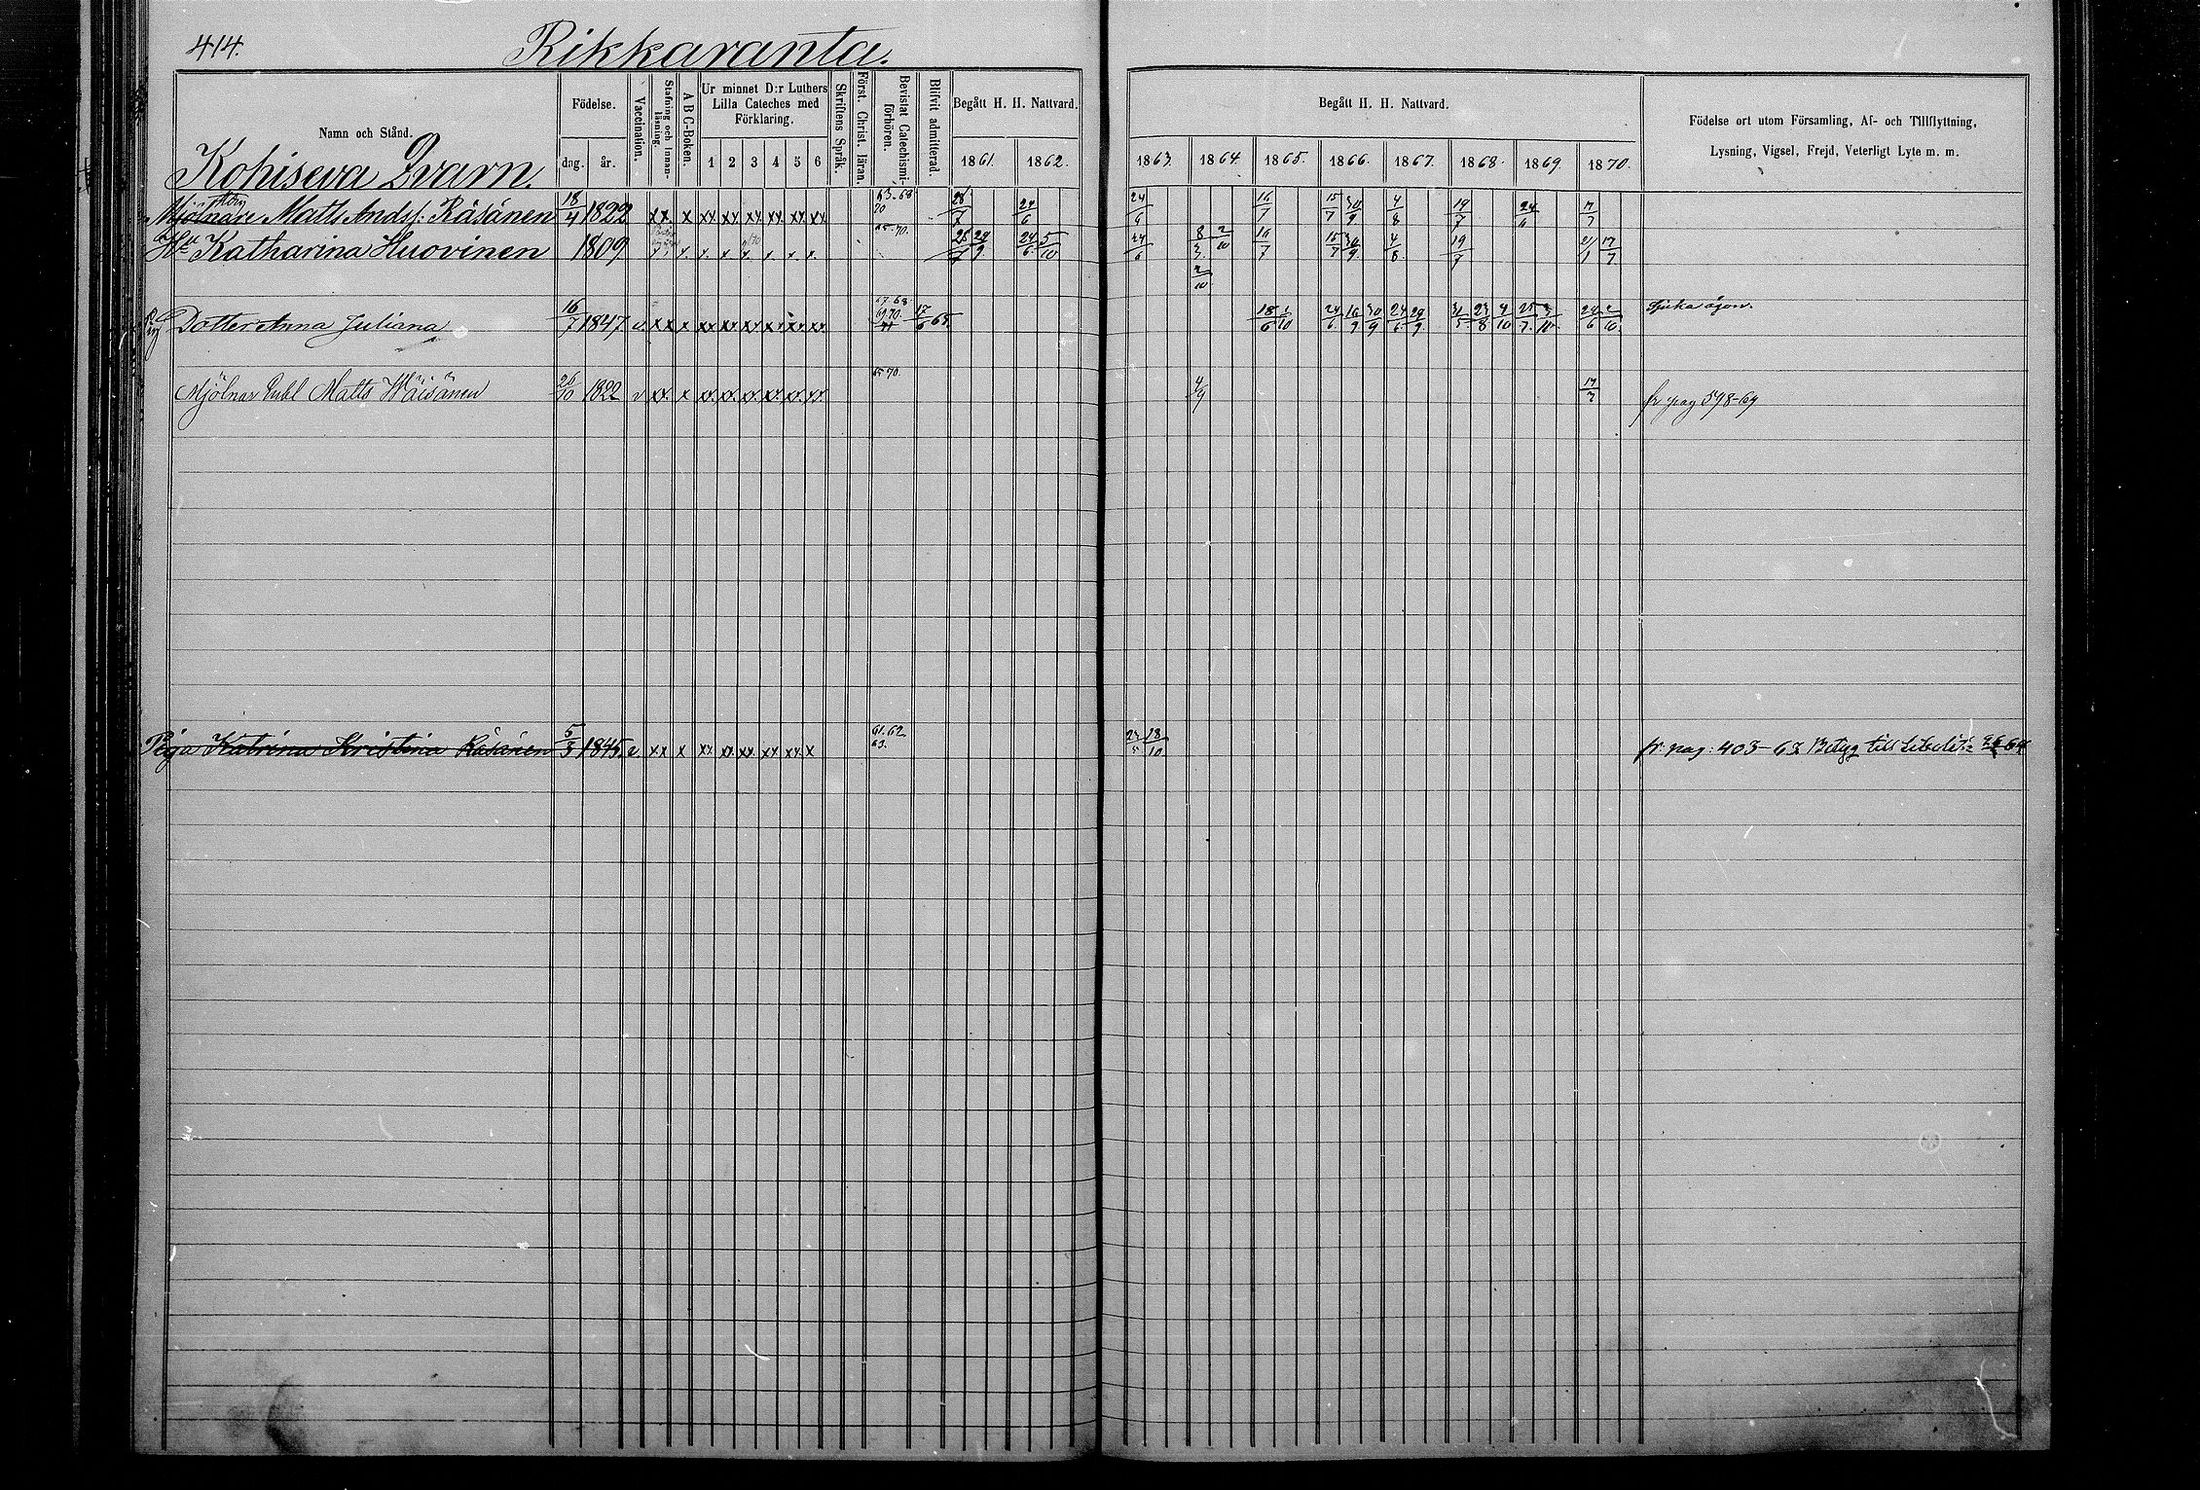 414.
Rikkaranta.
Namn och Stånd.
Födelse.
dag. år.
Vaccination.
Stafning och Innanläsning.
A B C-Boken.
Ur minnet D:r Luthers Lilla Cateches med Förklaring.
1 2 3 4 5 6
Skriftens Språk.
Först. Christ. läran.
Bevistat Catechismiförhören.
Blifvit admitterad.
Begått H. H. Nattvard.
1861. 1862.
Begått H. H. Nattvard.
1863. 1864. 1865. 1866. 1867. 1868. 1869. 1870.
Födelse ort utom Församling, Af- och Tillflyttning,
Lysning, Vigsel, Frejd, Veterligt Lyte m. m.
Kohiseva Qvarn.
Mjölnare Matts Andsf. Räsänen 18/4 1822 xx x xx xx xx xx xx xx 63-68 70 28/7 24/6 24/6 16/7 15/7 30/9 4/8 19/7 24/6 17/7
Hu Katharina Huovinen 1809 65.70. 24/6 5/10 24/6 8/3 2/10 16/7 15/7 30/9 4/8 19/7 17/7
2/10
Dotter Anna Juliana 16/7 1847 v xx x xx xx xx xx xx xx 67.68 69.70. 17/6 65 18/6 1/10 24/6 16/9 30/9 24/6 29/9 31/5 23/8 4/10 25/7 3/10 24/6 2/10 Sjuka ögon.
Mjölnar Matts Wäisänen 26/10 1822 v xx x xx xx xx xx xx xx 65 70 4/9 17/7 fr pag 598-69
Piga Katrina Kristina Räsänen 5/3 1845. v. xx x xx xx xx xx xx x 61.62 63. 18/10 fr. pag: 403-63 Betyg till Libelits 64